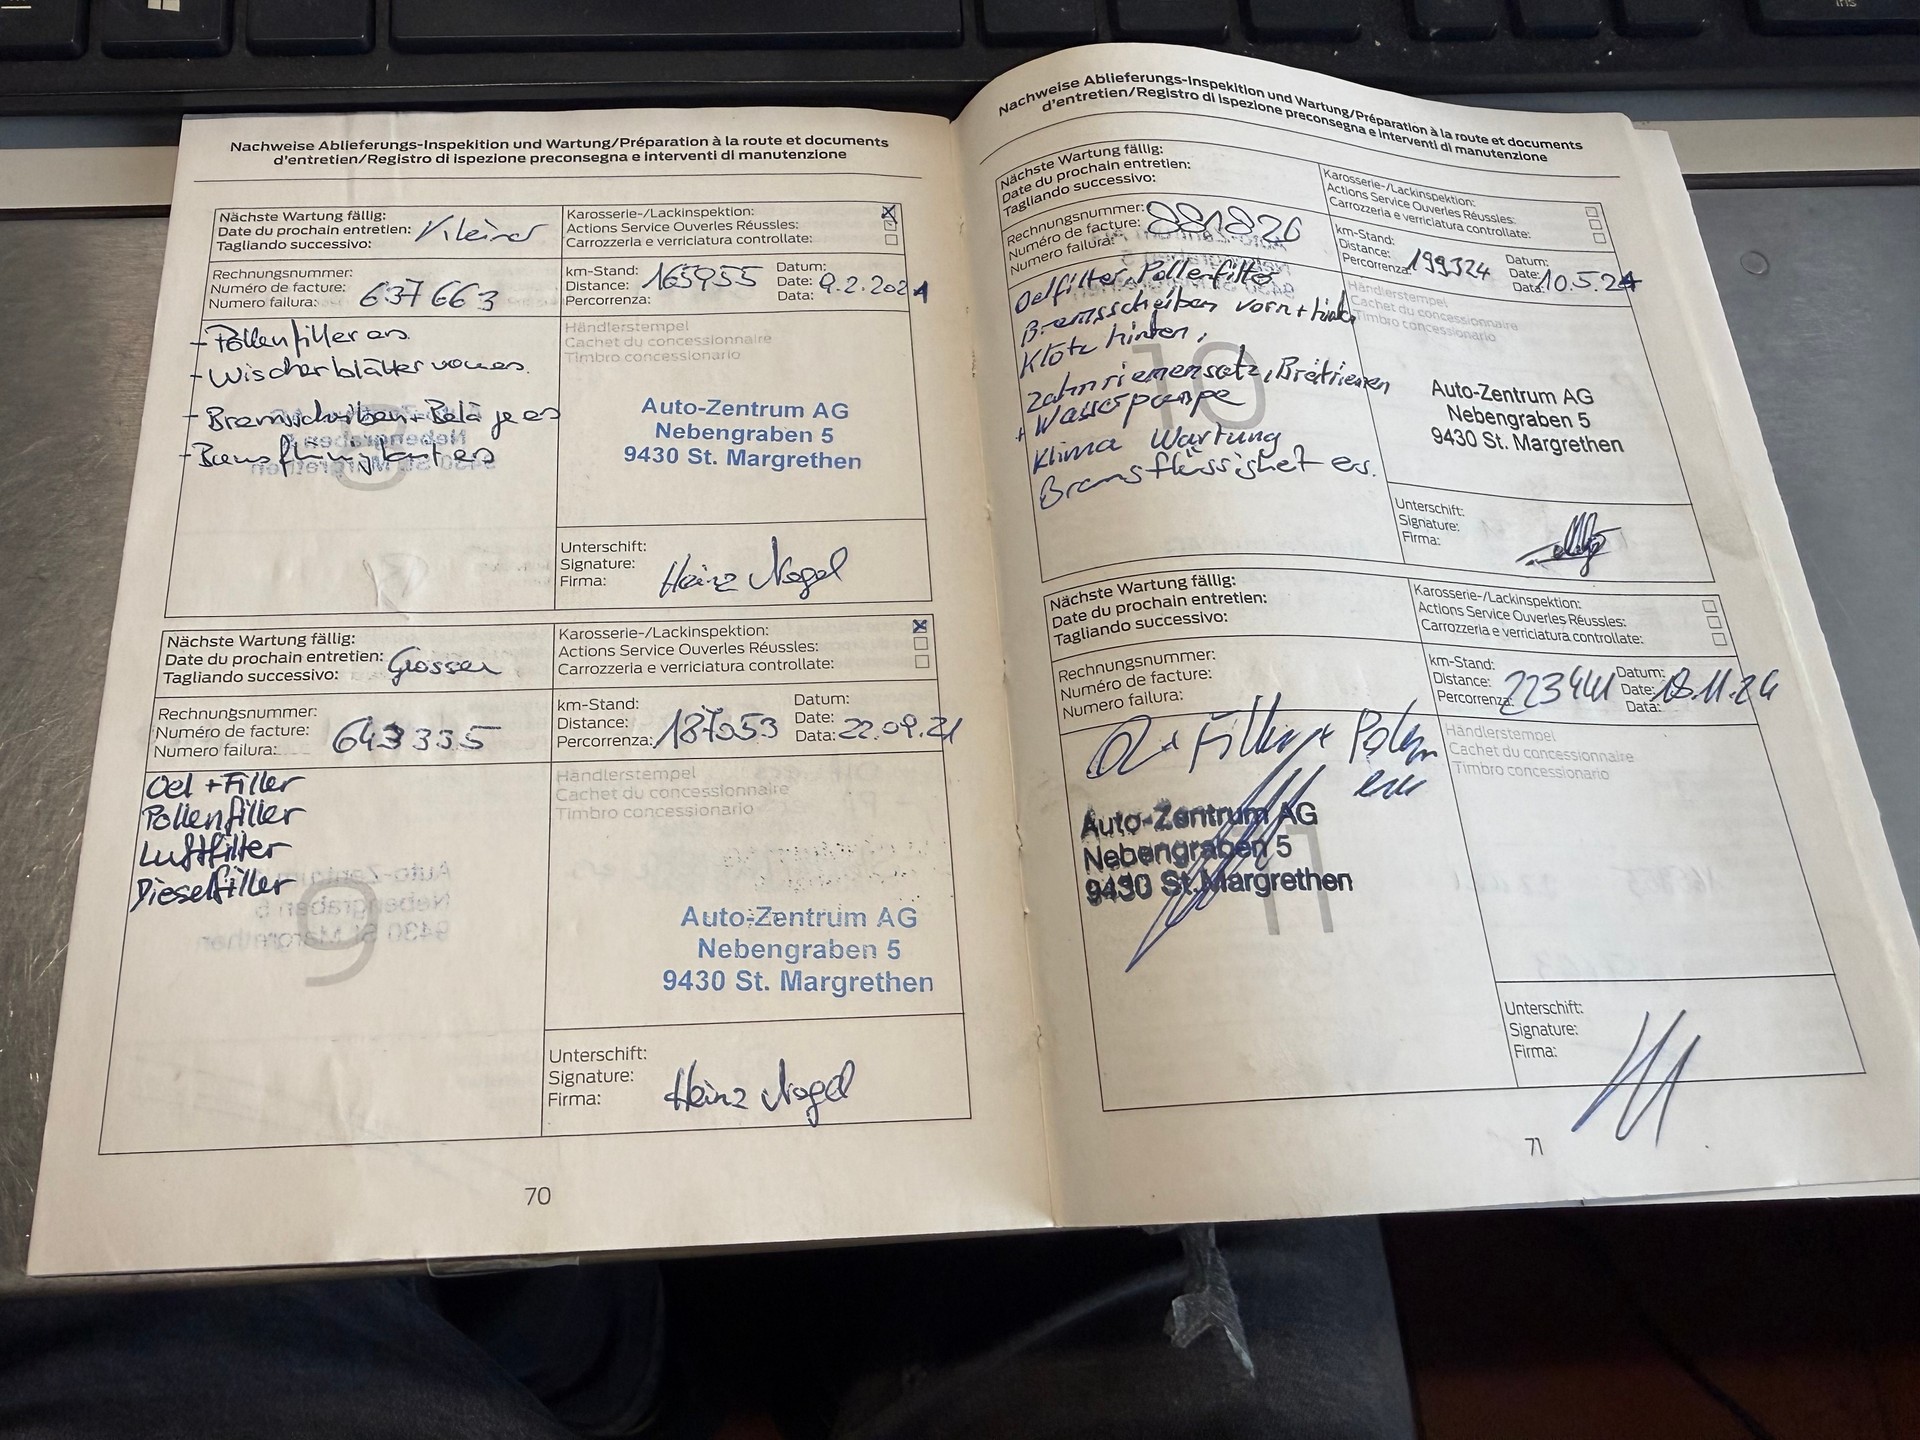 Nachweise Ablieferungs-Inspekition und Wartung/Préparation à la route et documents
d'entretien/Registro di ispezione preconsegna e interventi di manutenzione
Nächste Wartung fällig:
Date du prochain entretien:
Tagliando successivo:
Kleiner
Karosserie-/Lackinspektion:
Actions Service Ouverles Réussles:
Carrozzeria e verriciatura controllate:
Rechnungsnummer:
Numéro de facture:
Numero failura:
637663
km-Stand:
Distance:
Percorrenza:
165955
Datum:
Date:
Data:
9.2.2021
- Pollenfilter ers.
- Wischerblätter vorn ers.
- Bremsscheiben + Beläge ers
- Bremsflüssigkeit ers
8
Händlerstempel
Cachet du concessionnaire
Timbro concessionario
Auto-Zentrum AG
Nebengraben 5
9430 St. Margrethen
Unterschift:
Signature:
Firma:
Heinz Nagel
Nächste Wartung fällig:
Date du prochain entretien:
Tagliando successivo:
Grosser
Karosserie-/Lackinspektion:
Actions Service Ouverles Réussles:
Carrozzeria e verriciatura controllate:
Rechnungsnummer:
Numéro de facture:
Numero failura:
643335
km-Stand:
Distance:
Percorrenza:
187053
Datum:
Date:
Data:
22.09.21
Oel + Filter
Pollenfilter
Luftfilter
Dieselfilter
9
Händlerstempel
Cachet du concessionnaire
Timbro concessionario
Auto-Zentrum AG
Nebengraben 5
9430 St. Margrethen
Unterschift:
Signature:
Firma:
Heinz Nagel
70
Nachweise Ablieferungs-Inspekition und Wartung/Préparation à la route et documents
d'entretien/Registro di ispezione preconsegna e interventi di manutenzione
Nächste Wartung fällig:
Date du prochain entretien:
Tagliando successivo:
Karosserie-/Lackinspektion:
Actions Service Ouverles Réussles:
Carrozzeria e verriciatura controllate:
Rechnungsnummer:
Numéro de facture:
Numero failura:
881820
km-Stand:
Distance:
Percorrenza:
199324
Datum:
Date:
Data:
10.5.24
Oelfilter, Pollenfilter
Bremsscheiben vorn + hint
Klötz hinten,
Zahnriemensatz,
+ Wasserpumpe
Klima Wartung
Bremsflüssigkeit ers.
10
Händlerstempel
Cachet du concessionnaire
Timbro concessionario
Auto-Zentrum AG
Nebengraben 5
9430 St. Margrethen
Unterschift:
Signature:
Firma:
Nächste Wartung fällig:
Date du prochain entretien:
Tagliando successivo:
Karosserie-/Lackinspektion:
Actions Service Ouverles Réussles:
Carrozzeria e verriciatura controllate:
Rechnungsnummer:
Numéro de facture:
Numero failura:
km-Stand:
Distance:
Percorrenza:
Datum:
Date:
Data:
18.11.24
Öl + Filter + Pollen
Auto-Zentrum AG
Nebengraben 5
9430 St. Margrethen
11
Händlerstempel
Cachet du concessionnaire
Timbro concessionario
Unterschift:
Signature:
Firma:
71